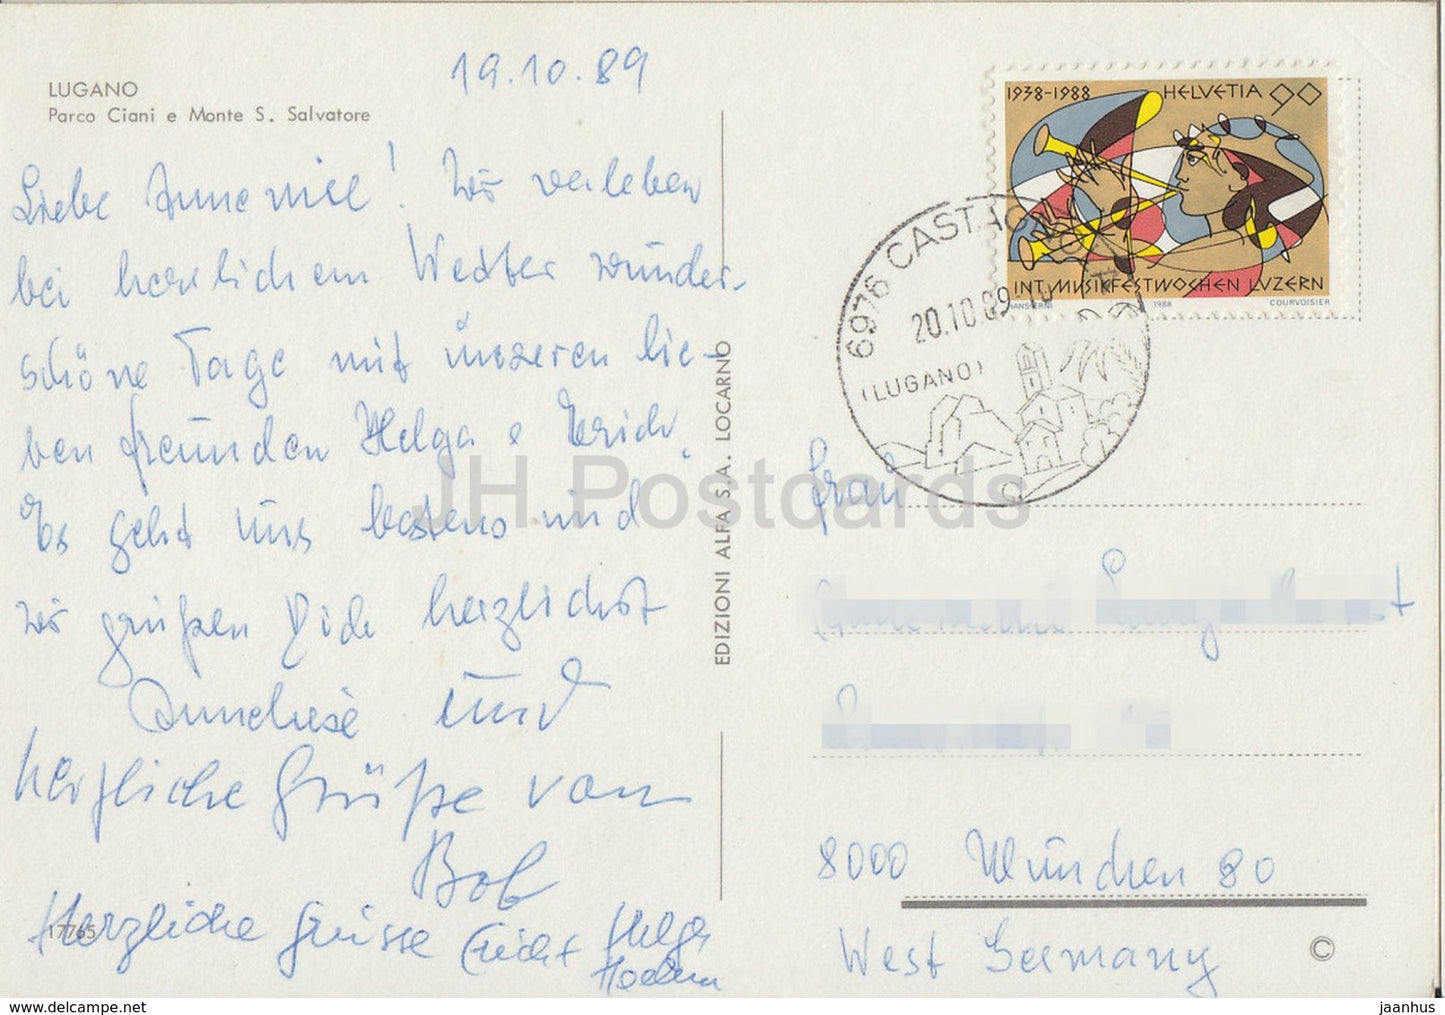 19.10.89
LUGANO
Parco Ciani e Monte S. Salvatore
Liebe Annemie! Wir verleben
bei herrlichem Wetter wunder-
schöne Tage mit unseren lie-
ben Freunden Helga & Erich.
Es geht uns bestens und
wir grüßen Dich herzlichst
Anneliese und
herzliche Grüße von
Bob
Herzliche Grüsse Helga
17765
EDIZIONI ALFA S.A. LOCARNO
1938-1988 HELVETIA 90
INT. MUSIKFESTWOCHEN LVZERN
HANS ERNI 1988 COURVOISIER
6976 CASTAGNOLA
20.10.89
(LUGANO)
Frau
8000 München 80
West Germany
©
JH Postcards
jaanhus
delcampe.net